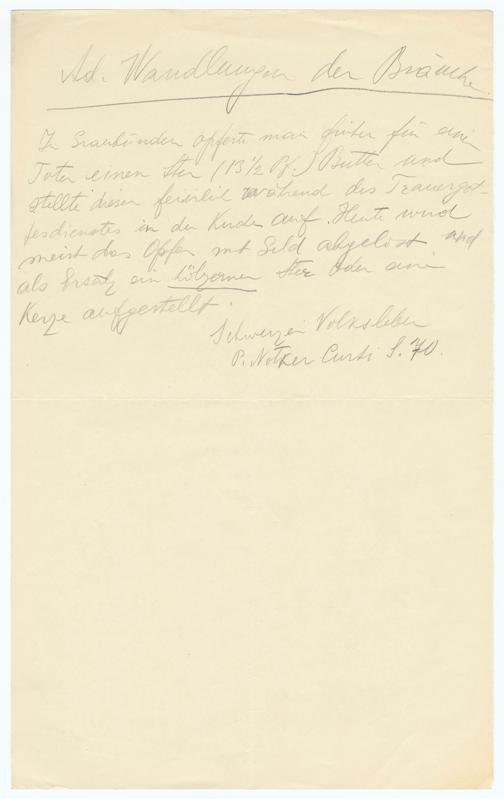 Ad. Wandlungen der Bräuche
In Graubünden opferte man früher für ein
Toter einen Ster (13 ½ Pf.) Butter und
stellte diesen feierlich während des Trauergot-
tesdienstes in der Kirche auf. Heute wird
meist das Opfer mit Geld abgelöst und
als Ersatz ein hölzerner Ster oder eine
Kerze aufgestellt.
Schweizer Volksleben
P. Notker Curti S. 70.